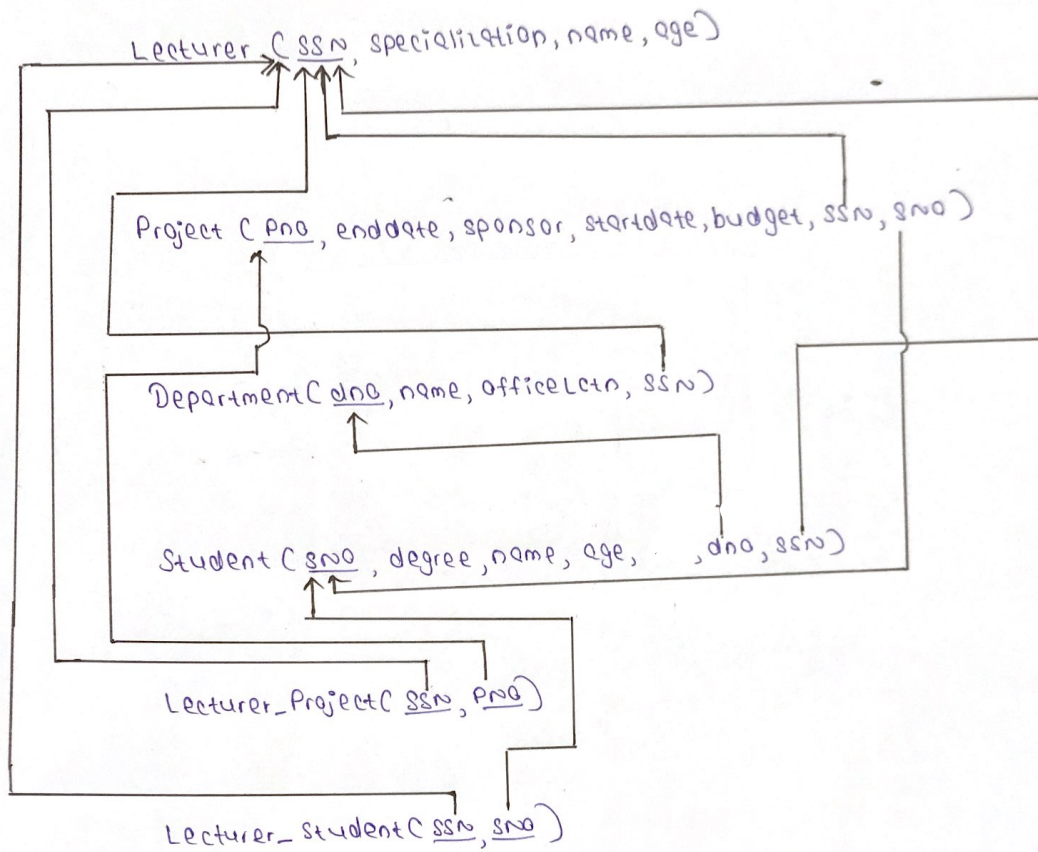 Lecturer (SSN, specialization, name, age)
Project (pno, enddate, sponsor, startdate, budget, SSN, SNO)
Department (dno, name, officeLctn, SSN)
Student (SNO, degree, name, age, , dno, SSN)
Lecturer_Project (SSN, PNO)
Lecturer_Student (SSN, SNO)